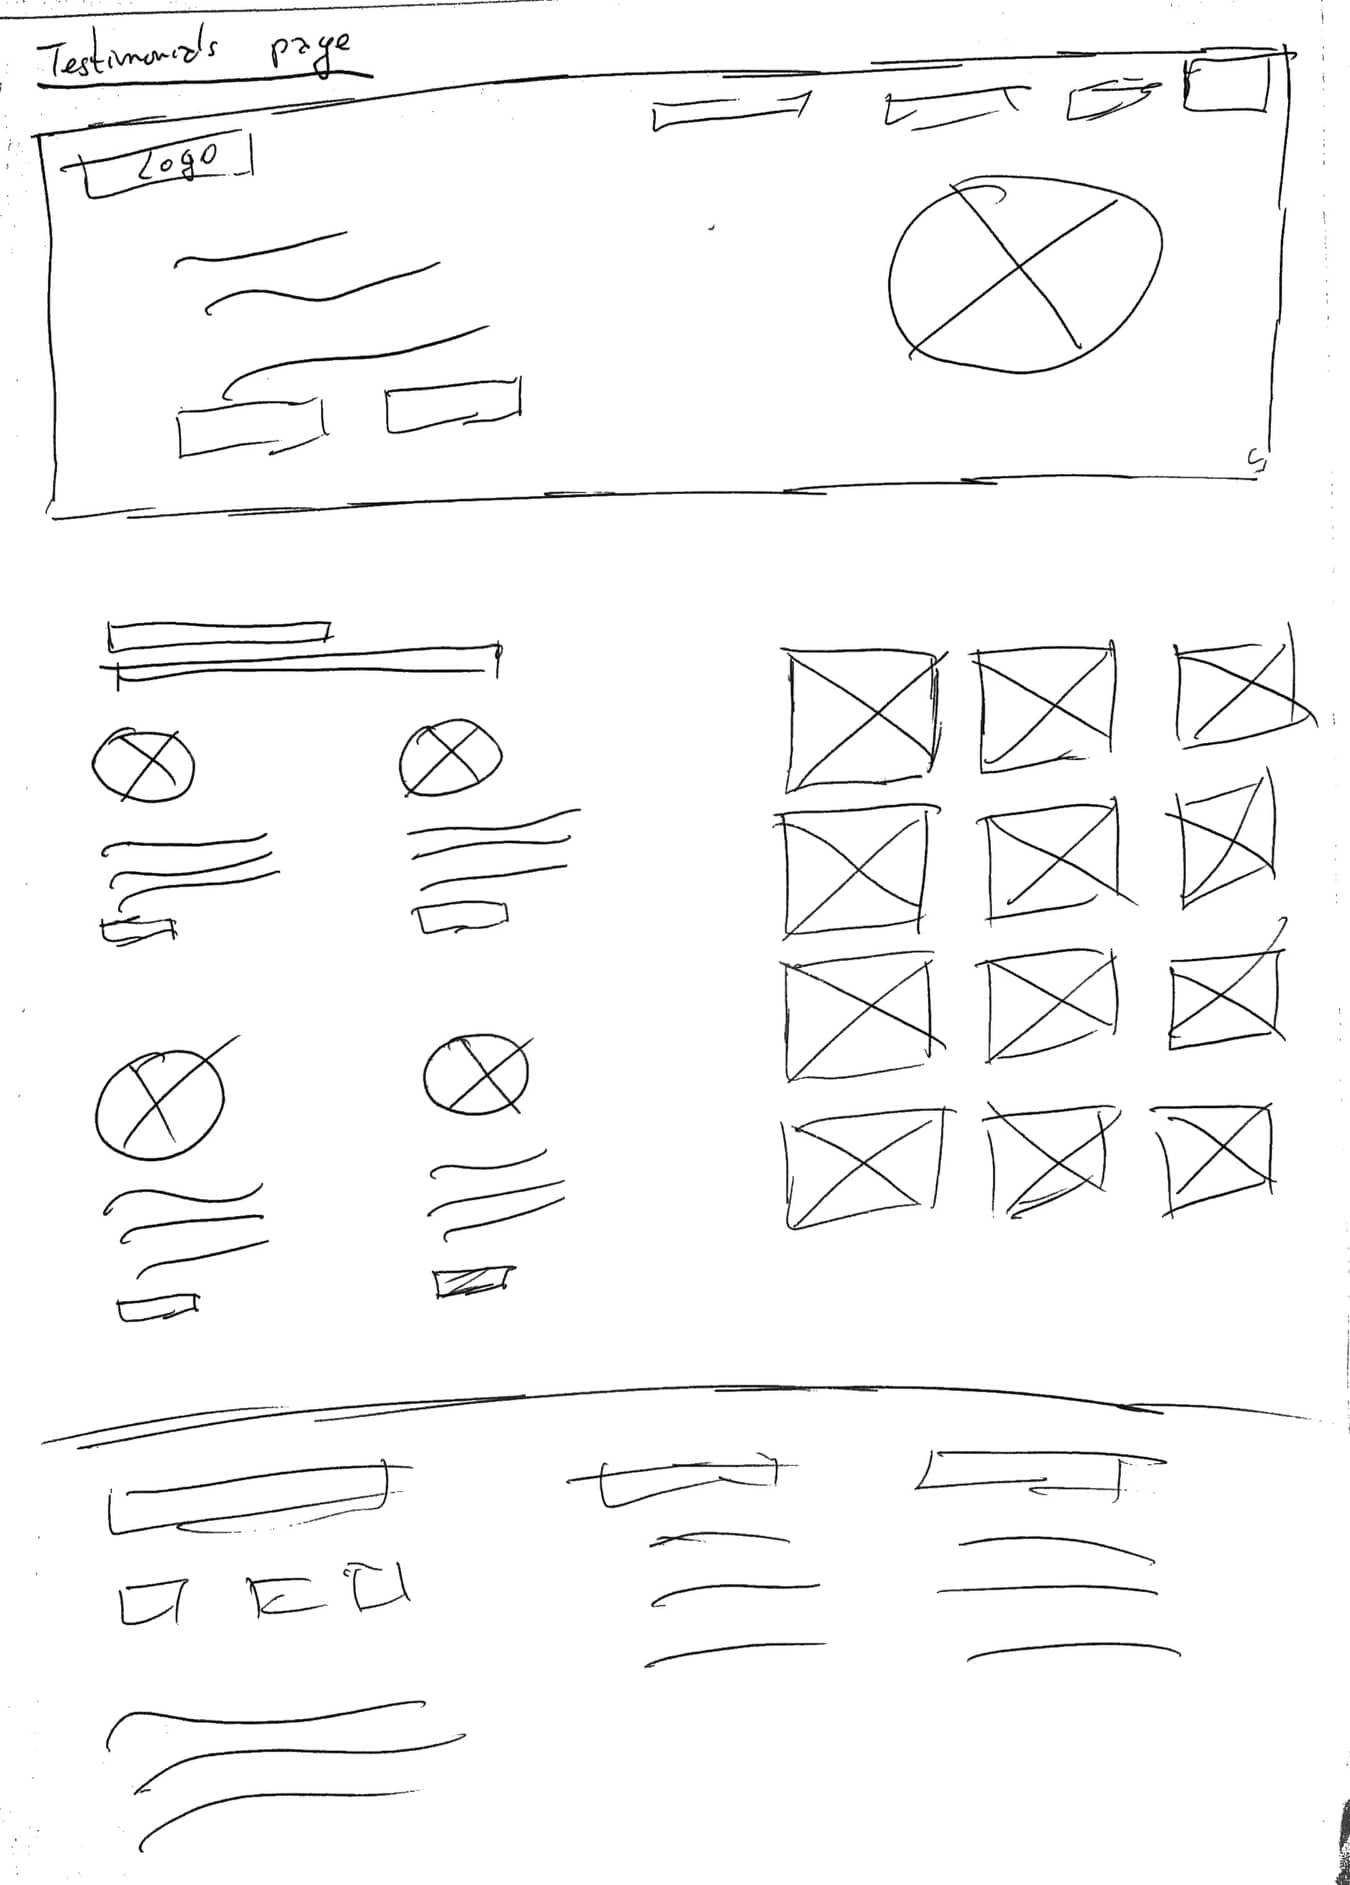 Testimonials page
Logo